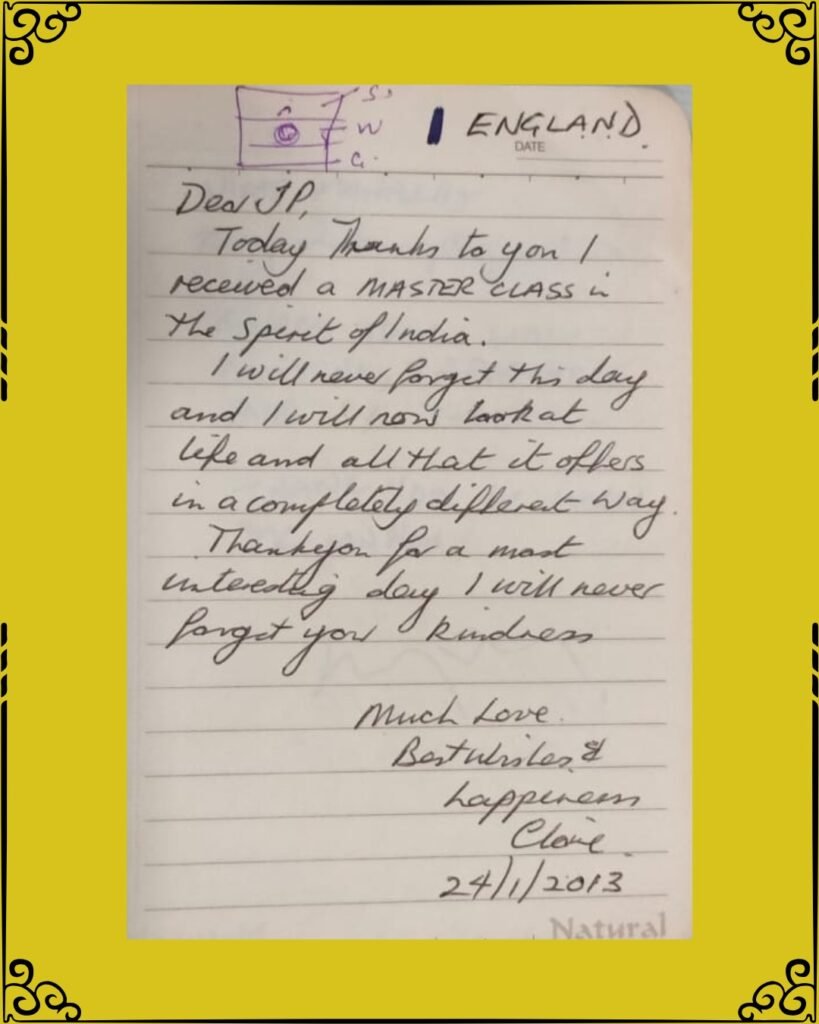 S
W
G.
ENGLAND.
DATE
Dear JP,
Today Thanks to you I
received a MASTER CLASS in
the Spirit of India.
I will never forget this day
and I will now look at
life and all that it offers
in a completely different way.
Thankyou for a most
interesting day I will never
forget your kindness
Much Love.
Best Wishes &
happiness
Claire.
24/1/2013
Natural